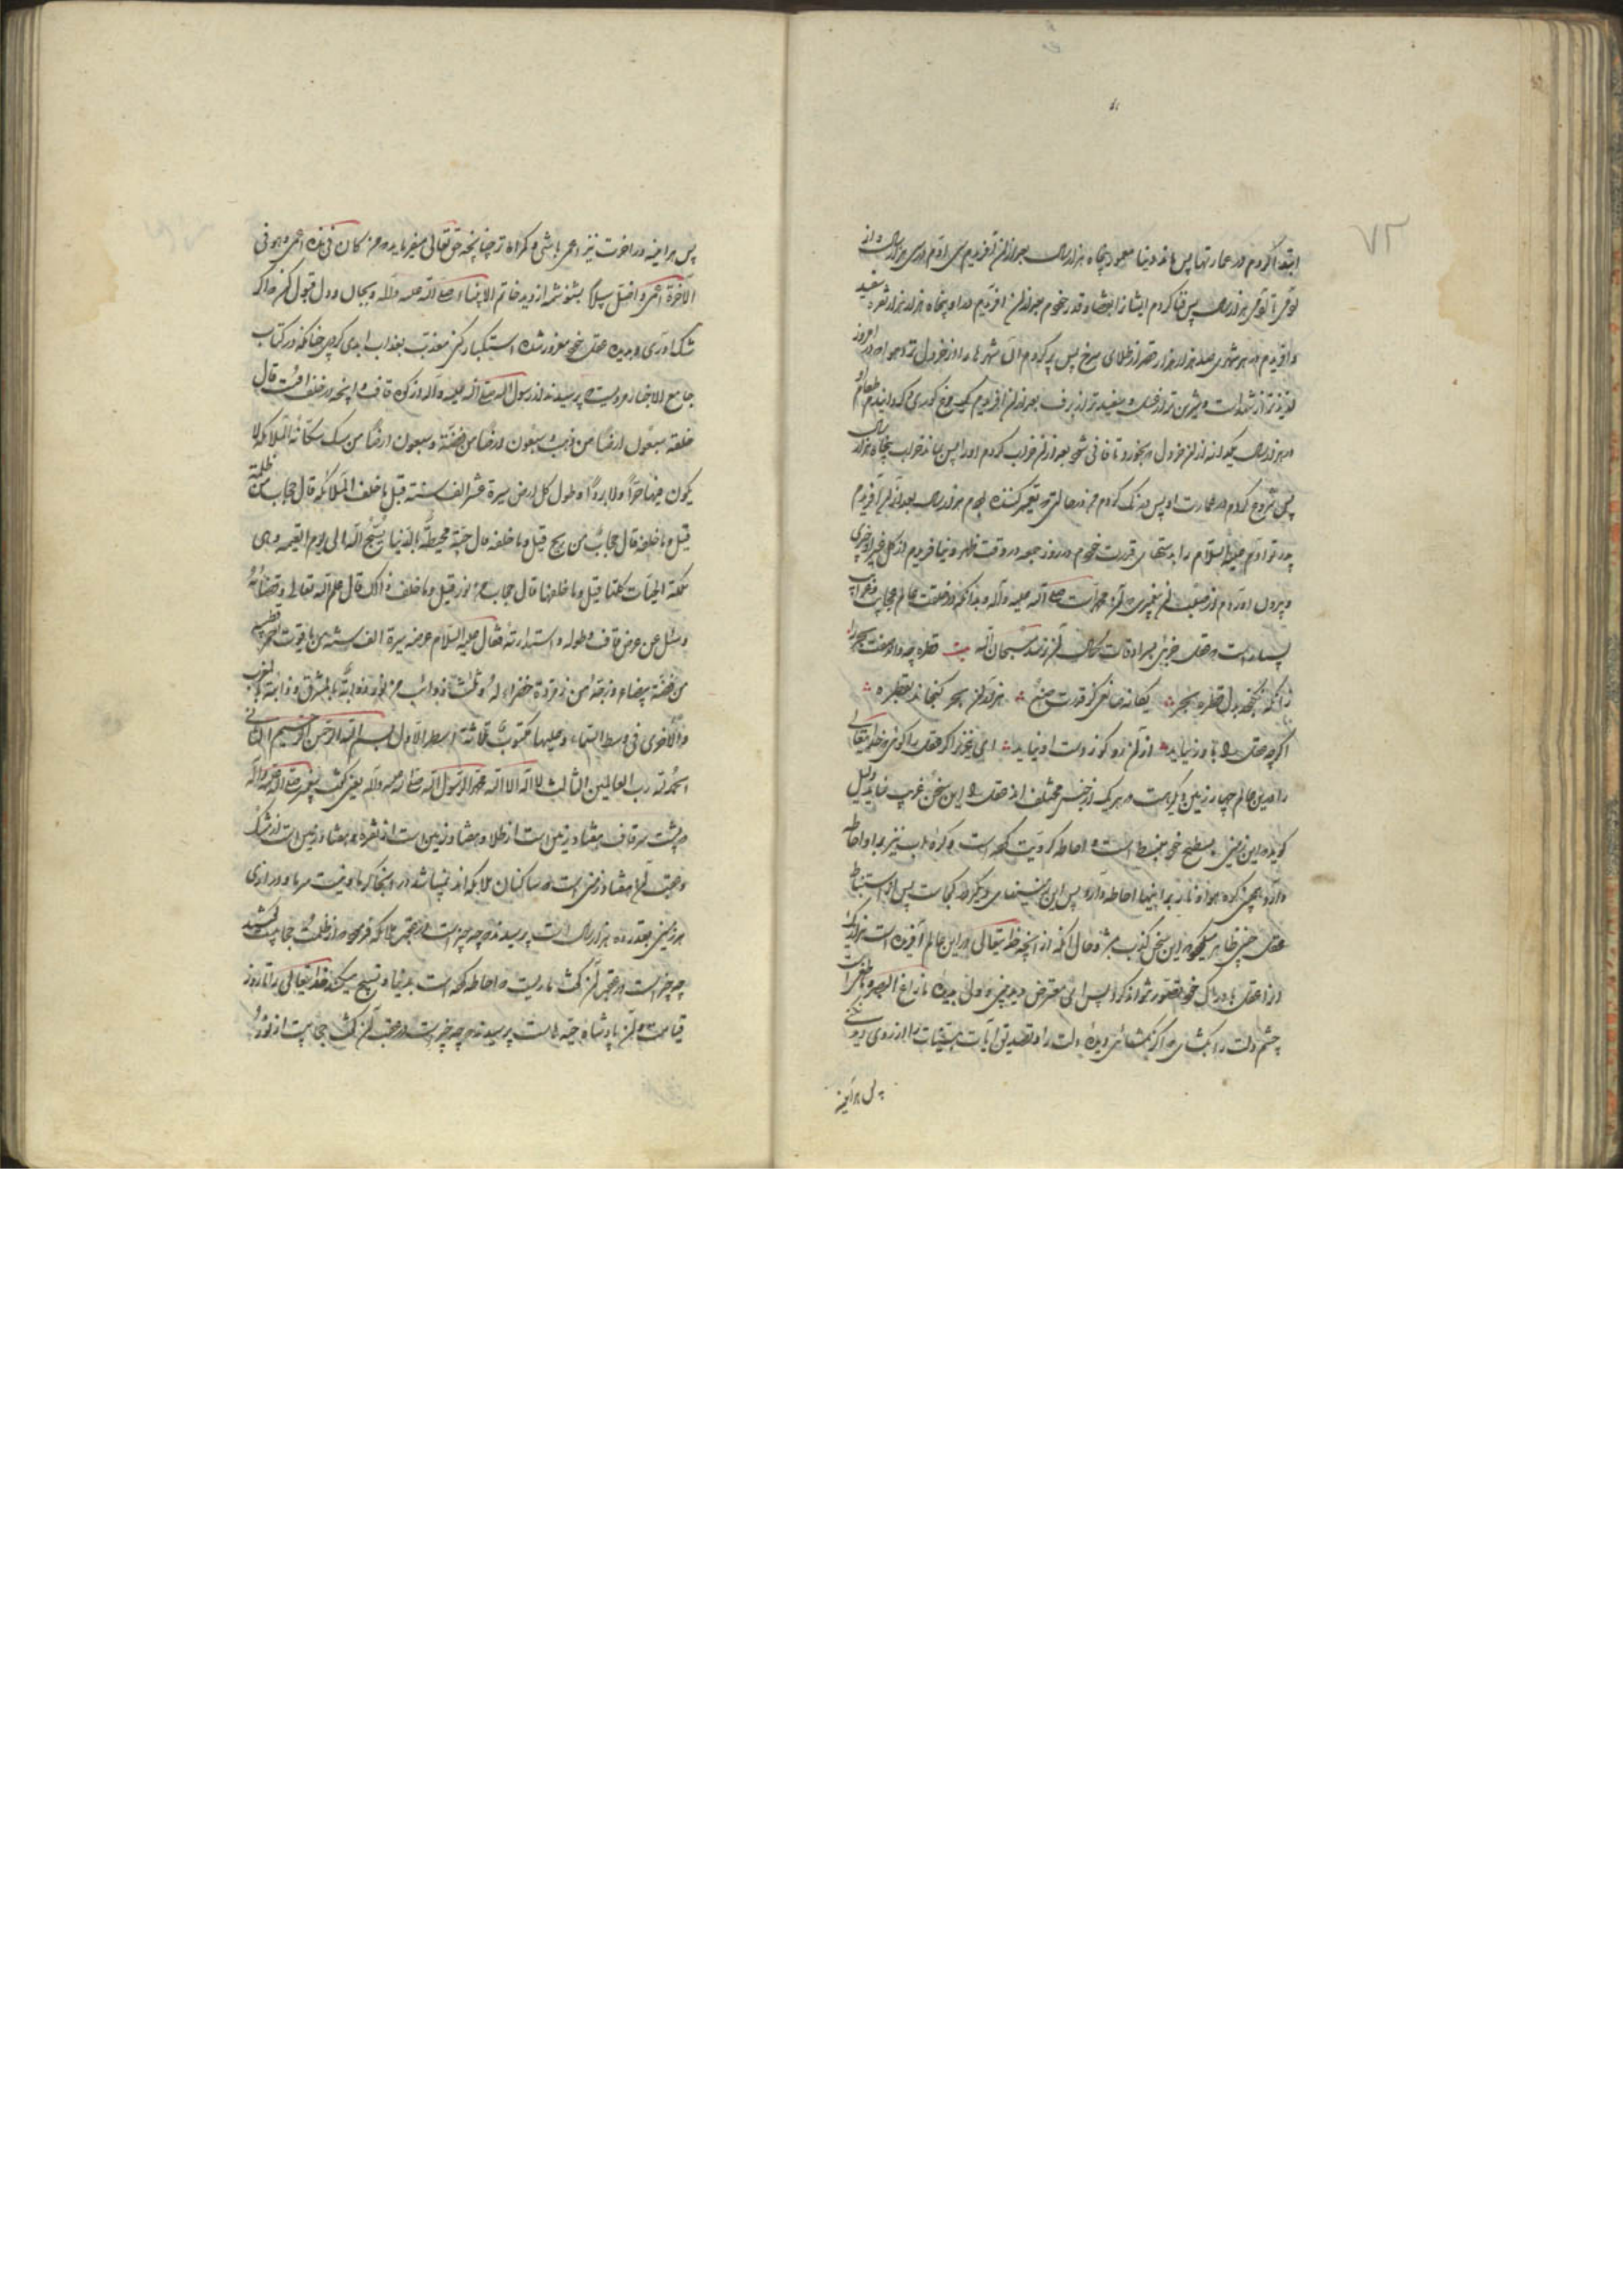 ۷۲
ابتدا کردم در عمارتها پس ماند دنیا معمور پنجاه هزار سال بعد از آن آفریدم سی آدم در سی هزار سال و از
آدمی تا آدمی هزار سال پس فنا کردم ایشانرا بقضا و قدر خودم بعد از آن آفریدم در او پنجاه هزار هزار شهر از نقره سفید
و آفریدم در هر شهری صد هزار هزار قصر از طلای سرخ پس پر کردم آن شهرها را از خردل تا هوا در آن روز
لذیذتر از شهد است و شیرین‌تر از عسل و سفیدتر از برف بعد از آن آفریدم یک مرغ کوری و گردانیدم طعام او
در هزار سال یکدانه از آن خردل را بخورد تا فانی شد بعد از آن خراب کردم او را پس ماند خراب پنجاه هزار سال
پس شروع کردم در عمارت او پس درنگ کردم من در حالتی که تعمیر کننده بودم هزار سال بعد از آن آفریدم
پدر تو آدم علیه السلام را بدستهای قدرت خودم در روز جمعه در وقت ظهر و نیافریدم از گل غیر او چیزی
و بیرون آوردم از صلب آن پیغمبری که آن محمد است صلی الله علیه و آله و بدانکه در خلقت عالم عجایب و غرایب
بسیار است که عقل جزئی بسرادقات کمال آن نرسد سبحان الله بیت قطره چه داند صفت بحر را
زانکه نگنجد بدل قطره بحر یگانه صانعی کز قدرت صنع هزاران بحر گنجاند بقطره
اگرچه عقل را باور نیاید از آن رو کو ز دست او نیاید ای عزیز اگر عقل را گوئی که خدایتعالی
را در این عالم چهار زمین دیگر هست که هر یک از جنس مختلف اند عقل را این سخن غریب نماید دلیل
گوید که این زمین بسطح خود منبسط است و احاطه کرویت کرده است و کره آب نیز بر او احاطه
دارد و همچنین کره هوا و نار بر اینها احاطه دارد پس این زمینهای دیگر که کجاست پس از استنباط
عقل چنین ظاهر میگردد که این سخن کذب باشد و حال آنکه از آنچه خدایتعالی در این عالم آفریده است هزار یک
از آن عقل بادراک خود تصور نتواند کرد پس ای معترض دیده جنی و ولی بدیده ما زاغ البصر و ما طغی
چشم دلت را بگشای که اگر نگشائی دیده دلت را و تصدیق آیات بینات را از روی دیو کنی
پس هر آینه
پس هر آینه در آخرت نیز اعمی باشی و گمراه‌تر چنانچه حق تعالی میفرماید و من کان فی هذه اعمی و هو فی
الآخرة اعمی و اضل سبیلا بشنو شمه از دید خاتم الانبیاء صلی الله علیه و آله و بجان و دل قبول کن که اگر
شک آوری و بدیده عقل خود مغرور شده استکبار کنی معذب بعذاب ابدی گردی چنانکه در کتاب
جامع الاخبار مرویست که پرسیدند از رسول الله صلی الله علیه و آله از کوه قاف و آنچه در خلف اوست قال
خلفه سبعون ارضا من ذهب و سبعون ارضا من فضة و سبعون ارضا من مسک سکانه الملائکة لا
یکون فیها حرا ولا بردا و طول کل ارض مسیرة عشر الف سنة قیل ما خلف الملائکة قال حجاب من ظلمة
قیل و ما خلفه قال حجاب من ریح قیل و ما خلفه قال حیة محیطة بالدنیا یسبح الله الی یوم القیمة و هی
ملکة الحیات کلها قیل و ما خلفها قال حجاب من نور قیل و ما خلف ذلک قال علم الله تعالی و قضائه
و سئل عن عرض قاف و طوله و استدارته فقال علیه السلام عرضه مسیرة الف سنة من یاقوت احمر قضیبه
من فضة بیضاء و زجه من زمردة خضراء له ثلث ذوائب من نور ذوابة بالمشرق و ذوابة بالمغرب
و الاخری فی وسط السماء و علیها مکتوب ثلاثة اسطر الاول بسم الله الرحمن الرحیم الثانی
الحمد لله رب العالمین الثالث لا اله الا الله محمد الرسول الله صلی الله علیه و آله یعنی گفت پیغمبر صلی الله علیه و آله
که پشت سر قاف هفتاد زمین است از طلا و هفتاد زمین است از نقره و هفتاد زمین است از مشک
و عقب آن هفتاد زمین است که ساکنان ملائکه‌اند نمیباشد در آنجا گرما و نیست سرما و درازی
هر زمینی بقدر ده هزار سال است پرسیدند که چه چیز است در عقب ملائکه فرمود که از ظلمت حجابیست گفتند
چه چیز است در عقب آن گفت ماریست که احاطه کرده است بدنیا و تسبیح میکند خدایتعالی را تا روز
قیامت و آن پادشاه حیه‌هاست پرسیدند که چه چیز است در عقب آن گفت حجابیست از نور